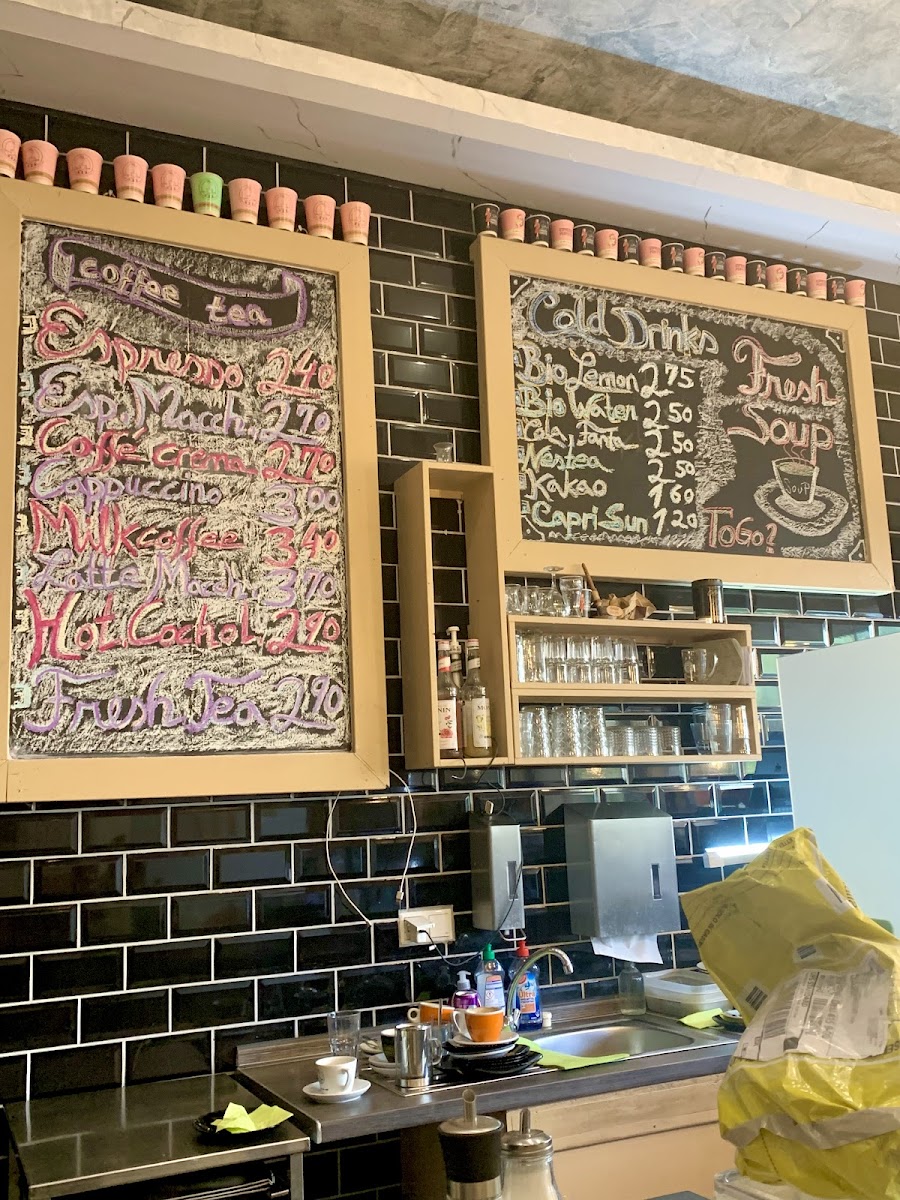 coffee tea
Espresso 240
Esp. Macch. 2,70
Coffe crema 2,70
Cappuccino 3,00
Milkcoffee 3,40
Latte Macch. 3,70
Hot Cochol 2,90
Fresh Tea 2,90
Cold Drinks
Bio Lemon 2 75
Bio Water 2 50
Cola, Fanta 2 50
Nestea 2 50
Kakao 1 60
Capri Sun 1 20
Fresh
Soup
SOUP
ToGo?